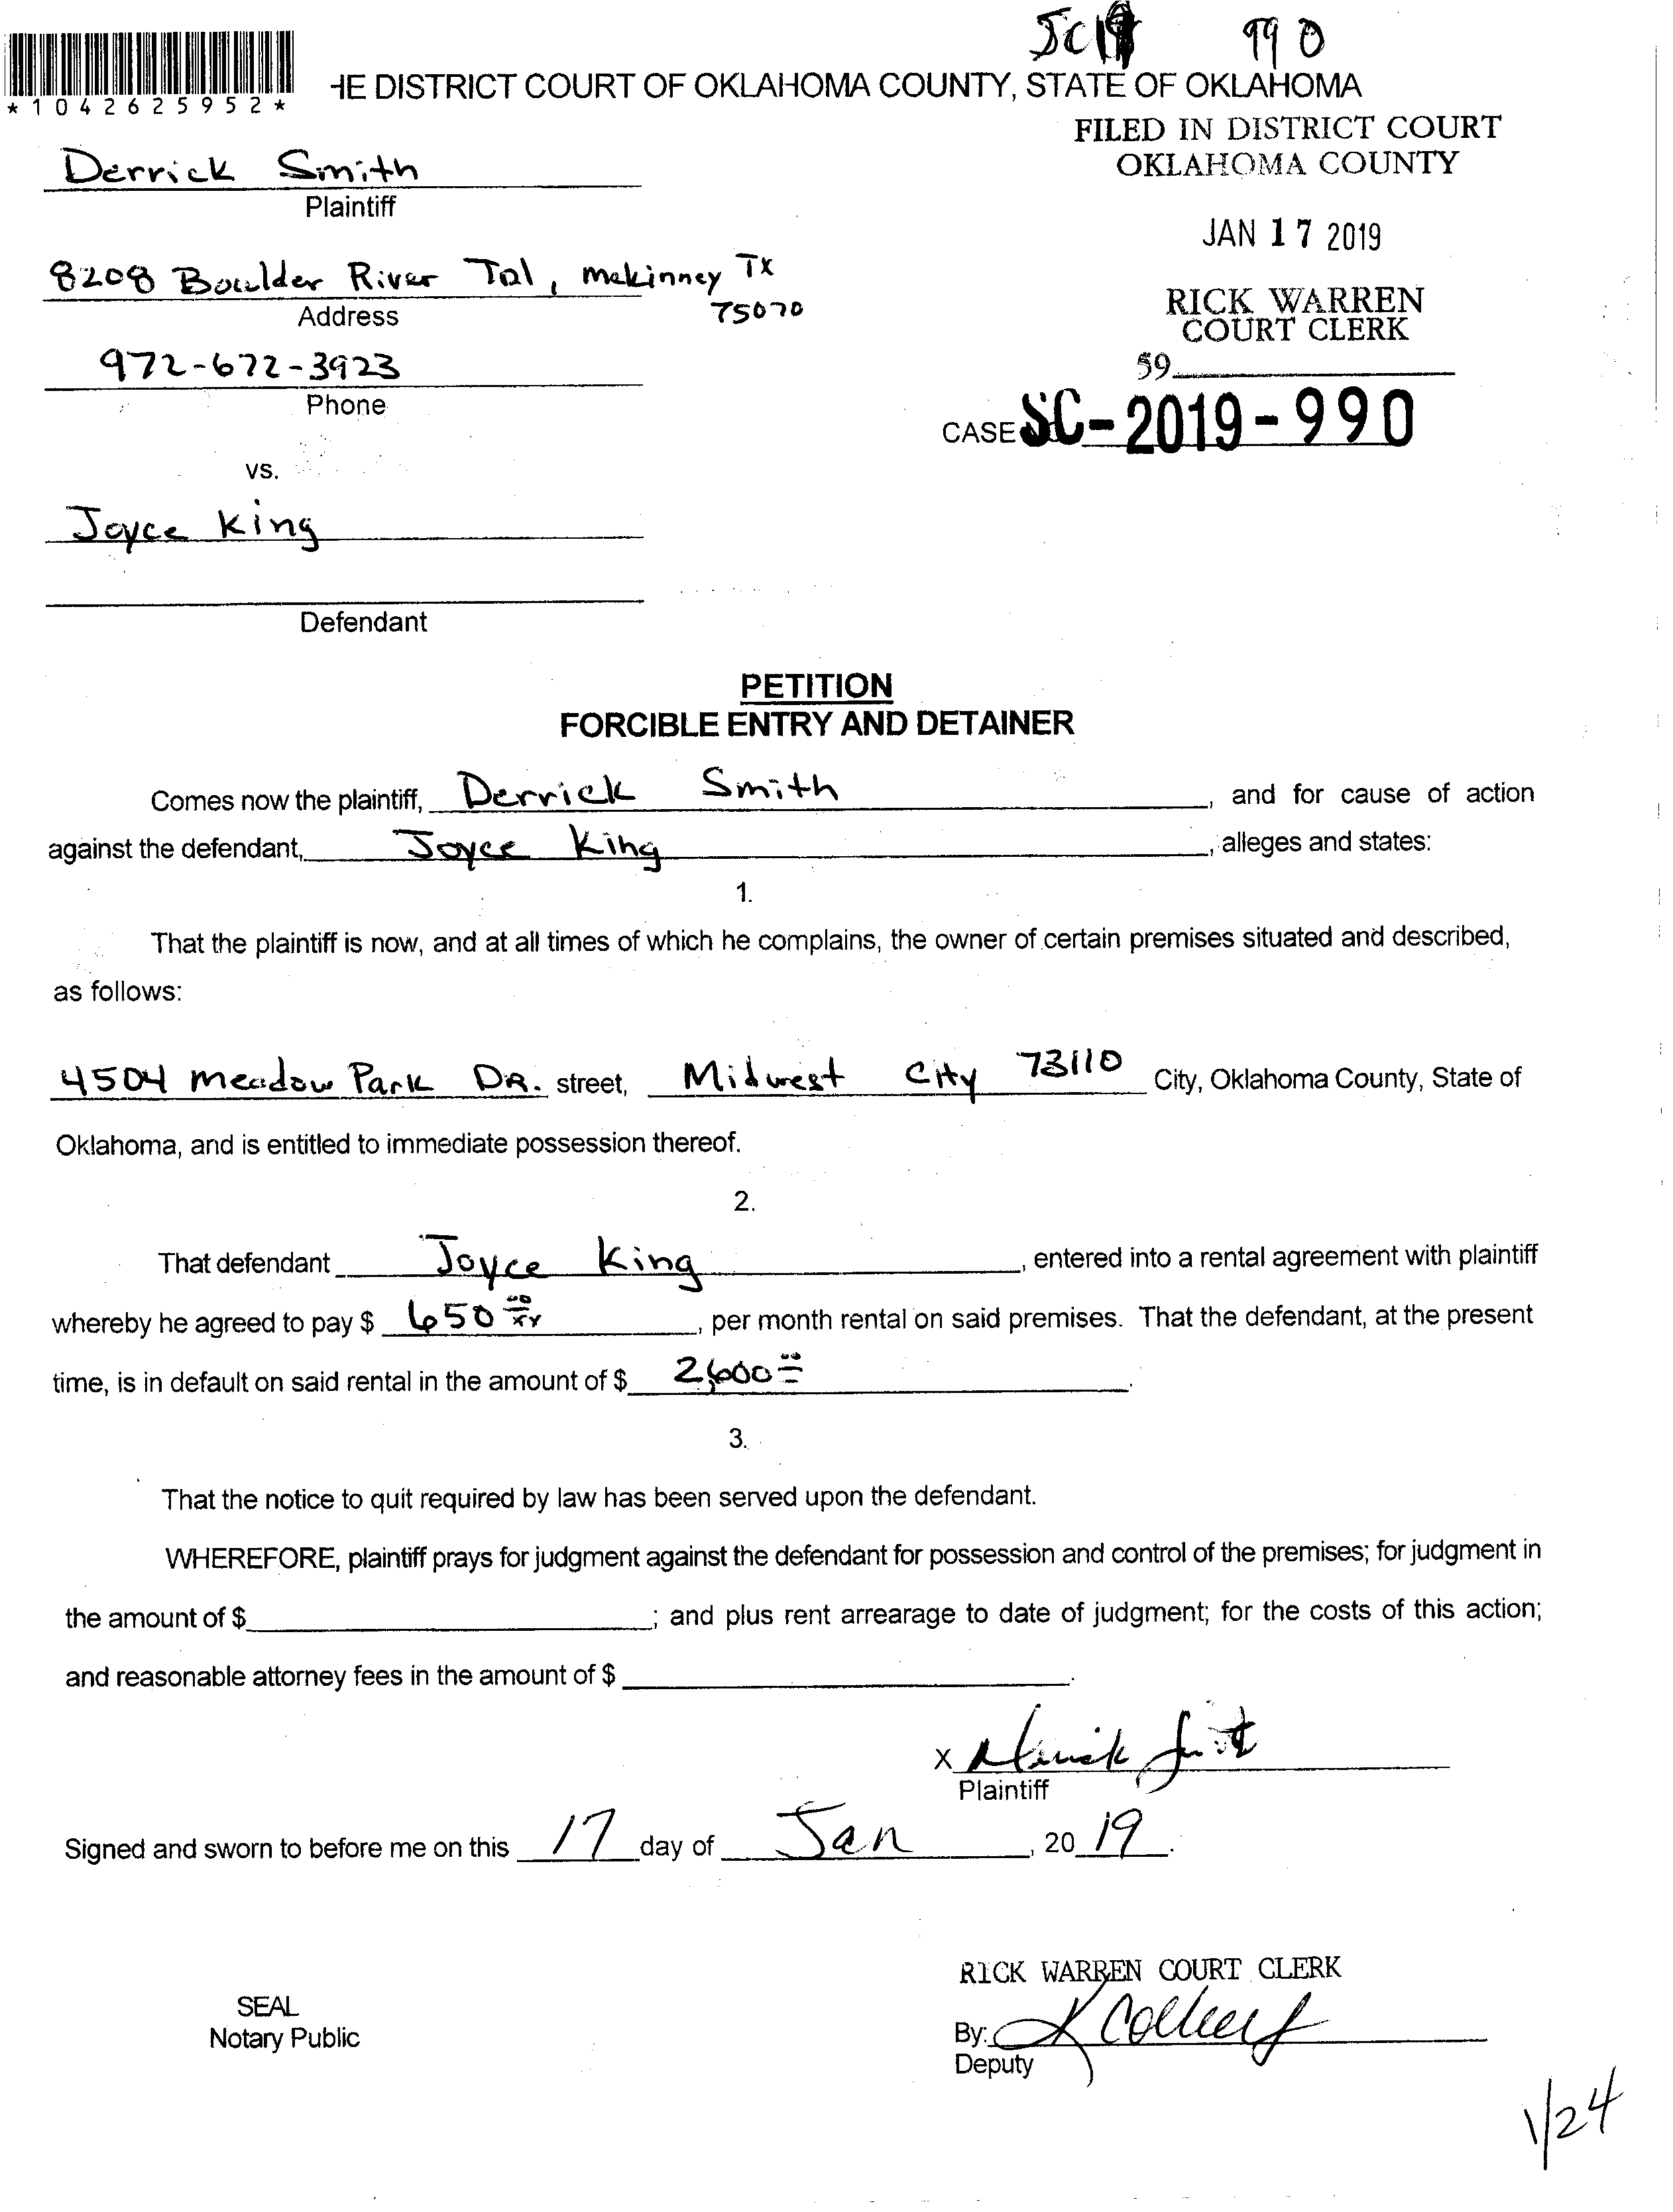 SC19 990
*1042625952*
HE DISTRICT COURT OF OKLAHOMA COUNTY, STATE OF OKLAHOMA
FILED IN DISTRICT COURT
OKLAHOMA COUNTY
Derrick Smith
Plaintiff
JAN 17 2019
8208 Boulder River Tal, mckinney TX
75070
Address
RICK WARREN
COURT CLERK
59
972-672-3923
Phone
CASE SC-2019-990
vs.
Joyce King
Defendant
PETITION
FORCIBLE ENTRY AND DETAINER
Comes now the plaintiff, Derrick Smith, and for cause of action
against the defendant, Joyce King, alleges and states:
1.
That the plaintiff is now, and at all times of which he complains, the owner of certain premises situated and described,
as follows:
4504 Meadow Park DR. street, Midwest City 73110 City, Oklahoma County, State of
Oklahoma, and is entitled to immediate possession thereof.
2.
That defendant Joyce King, entered into a rental agreement with plaintiff
whereby he agreed to pay $ 650 00/xx, per month rental on said premises. That the defendant, at the present
time, is in default on said rental in the amount of $ 2,600 00.
3.
That the notice to quit required by law has been served upon the defendant.
WHEREFORE, plaintiff prays for judgment against the defendant for possession and control of the premises; for judgment in
the amount of $ ; and plus rent arrearage to date of judgment; for the costs of this action;
and reasonable attorney fees in the amount of $ .
X Derrick Smith
Plaintiff
Signed and sworn to before me on this 17 day of Jan, 2019.
RICK WARREN COURT CLERK
SEAL
Notary Public
By: K
Deputy
1/24